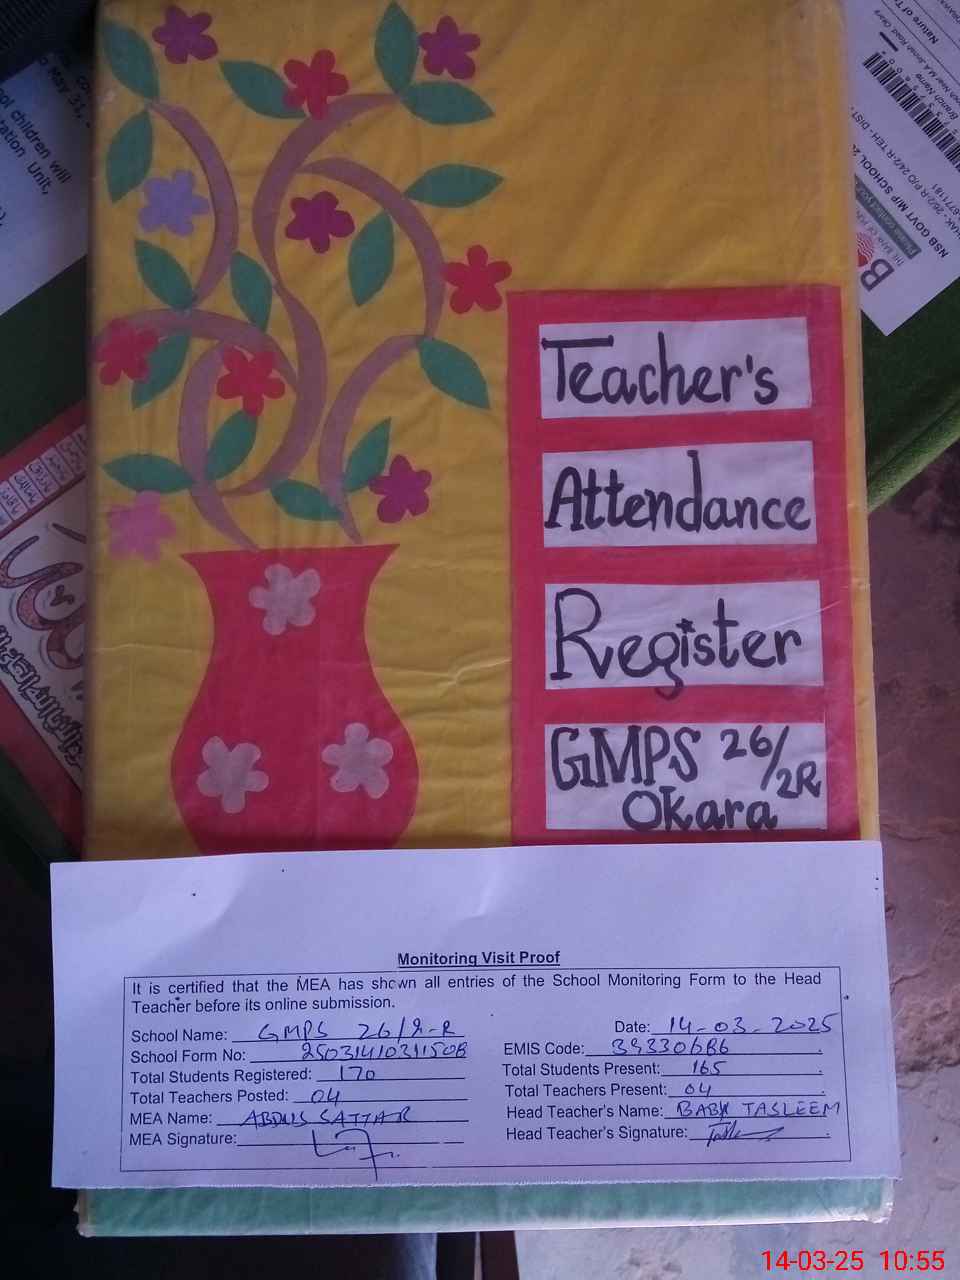 Teacher's
Attendance
Register
GMPS 26/2R
Okara
Monitoring Visit Proof
It is certified that the MEA has shown all entries of the School Monitoring Form to the Head
Teacher before its online submission.
School Name: GMPS 26/2-R Date: 14-03-2025
School Form No: 25031410311508 EMIS Code: 39330686
Total Students Registered: 170 Total Students Present: 165
Total Teachers Posted: 04 Total Teachers Present: 04
MEA Name: ABDUS SATTAR Head Teacher's Name: BABY TASLEEM
MEA Signature: Head Teacher's Signature:
May 31,
ol children will
tation Unit,
Nature of
Branch Name
NSB GOVT M/P SCHOOL
14-03-25 10:55